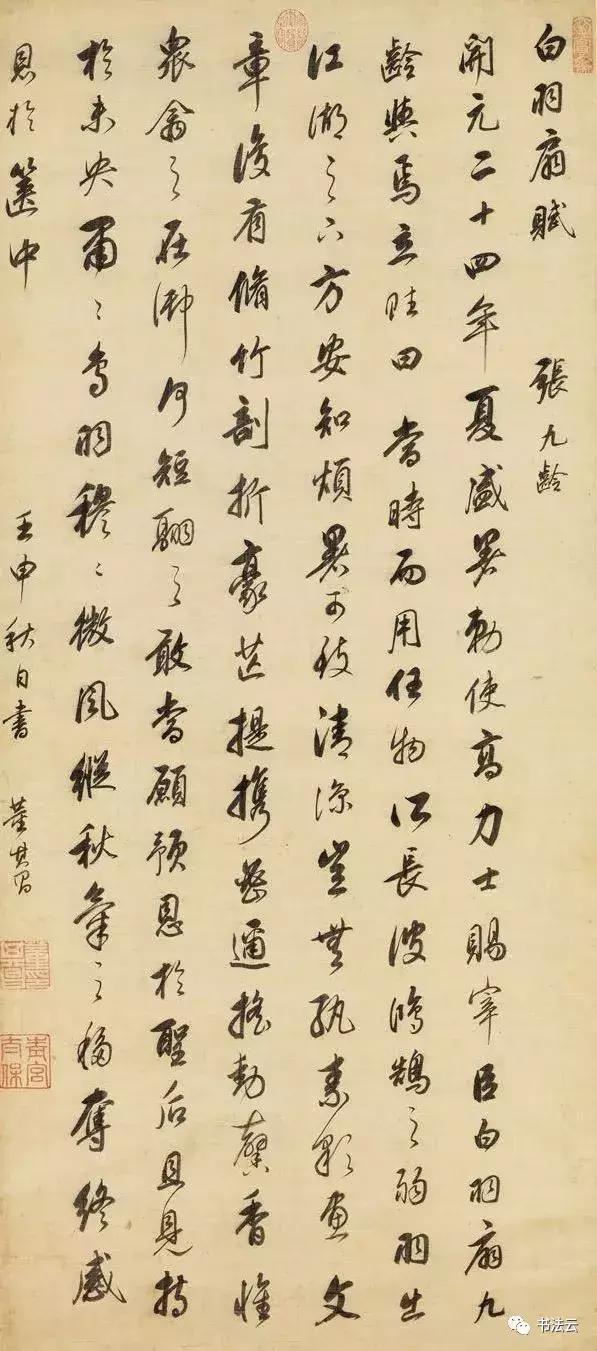 白羽扇賦 張九齡
開元二十四年夏盛暑勅使高力士賜宰臣白羽扇九
齡與焉立賦曰 當時而用任物所長彼鴻鵠之弱羽出
江湖之下方安知煩暑可致清涼豈無紈素彩畫文
章復有脩竹剖析豪芒提攜密邇搖動馨香惟
衆禽之在御何短翮之敢當願預恩於聖后且見持
於未央肅〻鳥羽穆〻微風縱秋氣之移奪終感
恩於篋中 壬申秋日書 董其昌
青宮太保
书法云